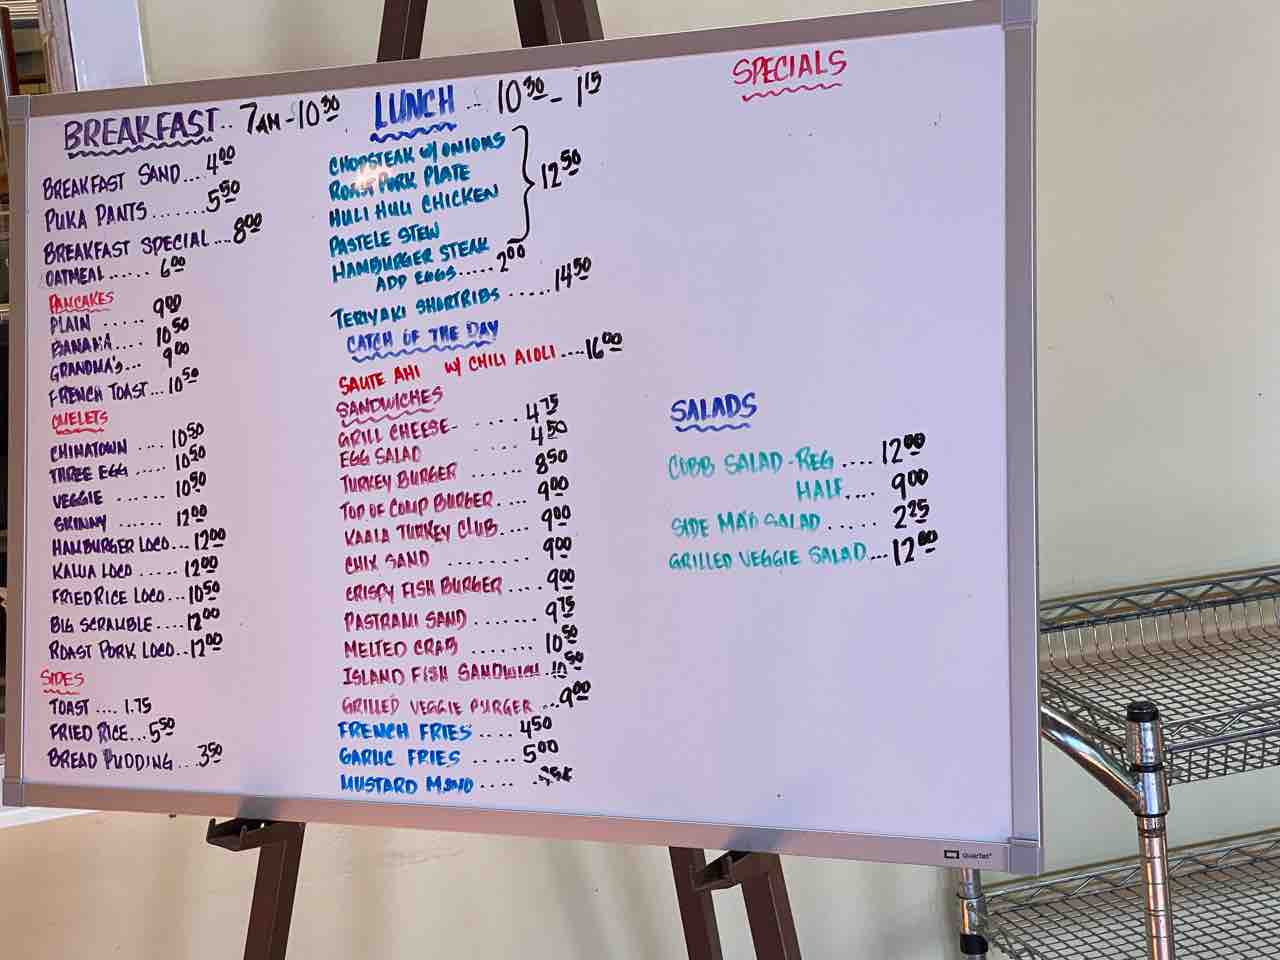 BREAKFAST.. 7AM-10³⁰
BREAKFAST SAND... 4⁰⁰
PUKA PANTS....... 5⁵⁰
BREAKFAST SPECIAL... 8⁰⁰
OATMEAL...... 6⁰⁰
PANCAKES
PLAIN ..... 9⁰⁰
BANANA.... 10⁵⁰
GRANDMA'S... 9⁰⁰
FRENCH TOAST... 10⁵⁰
OMELETS
CHINATOWN .... 10⁵⁰
THREE EGG ..... 10⁵⁰
VEGGIE ...... 10⁵⁰
SKINNY ...... 12⁰⁰
HAMBURGER LOCO... 12⁰⁰
KALUA LOCO ..... 12⁰⁰
FRIED RICE LOCO... 10⁵⁰
BIG SCRAMBLE.... 12⁰⁰
ROAST PORK LOCO.. 12⁰⁰
SIDES
TOAST .... 1.75
FRIED RICE... 5⁵⁰
BREAD PUDDING... 3⁵⁰
LUNCH -- 10³⁰ - 1¹⁵
CHOPSTEAK W/ ONIONS
ROAST PORK PLATE
HULI HULI CHICKEN 12⁵⁰
PASTELE STEW
HAMBURGER STEAK
ADD EGGS..... 2⁰⁰
TERIYAKI SHORTRIBS ..... 14⁵⁰
CATCH OF THE DAY
SAUTE AHI W/ CHILI AIOLI .... 16⁰⁰
SANDWICHES
GRILL CHEESE- .... 4⁷⁵
EGG SALAD .... 4⁵⁰
TURKEY BURGER ...... 8⁵⁰
TOP OF COMP BURGER.... 9⁰⁰
KAALA TURKEY CLUB.... 9⁰⁰
CHIX SAND ........ 9⁰⁰
CRISPY FISH BURGER .... 9⁰⁰
PASTRAMI SAND ....... 9⁷⁵
MELTED CRAB ....... 10⁵⁰
ISLAND FISH SANDWICH .10⁵⁰
GRILLED VEGGIE BURGER ...9⁰⁰
FRENCH FRIES .... 4⁵⁰
GARLIC FRIES ..... 5⁰⁰
MUSTARD ....
SPECIALS
SALADS
COBB SALAD-REG .... 12⁰⁰
HALF.... 9⁰⁰
SIDE SALAD ..... 2²⁵
GRILLED VEGGIE SALAD.... 12⁰⁰
quartet